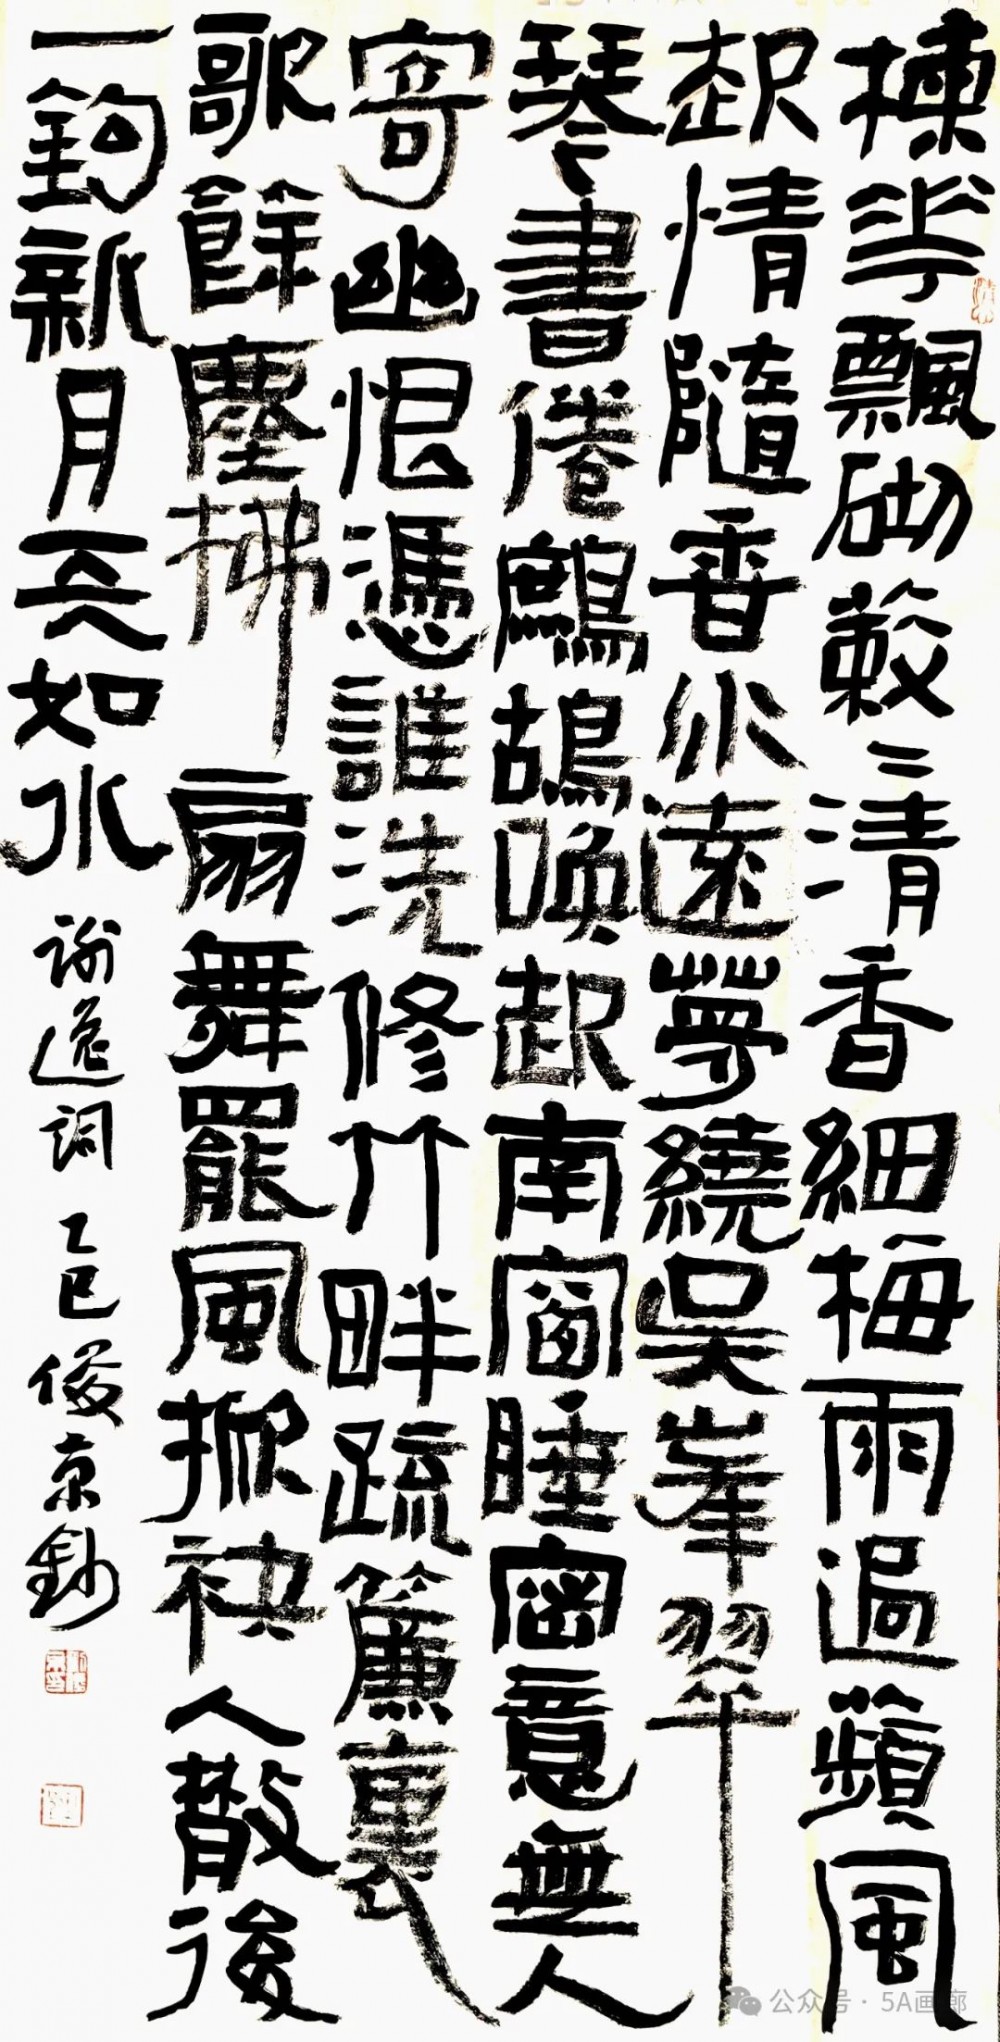 楝花飄砌蔌〻清香細梅雨過蘋風
起情隨香水遠夢繞吳峯翠
琴書倦鷓鴣喚起南窗睡密意無人
寄幽恨憑誰洗修竹畔疏簾裏
歌餘塵拂扇舞罷風掀袂人散後
一鉤新月天如水 謝逸詞 乙巳俊京鈔
公众号 · 5A画廊